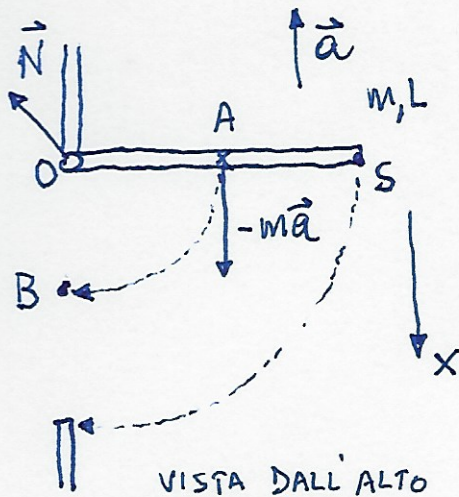 N⃗
a⃗
m, L
A
O
S
-ma⃗
B
X
VISTA DALL'ALTO